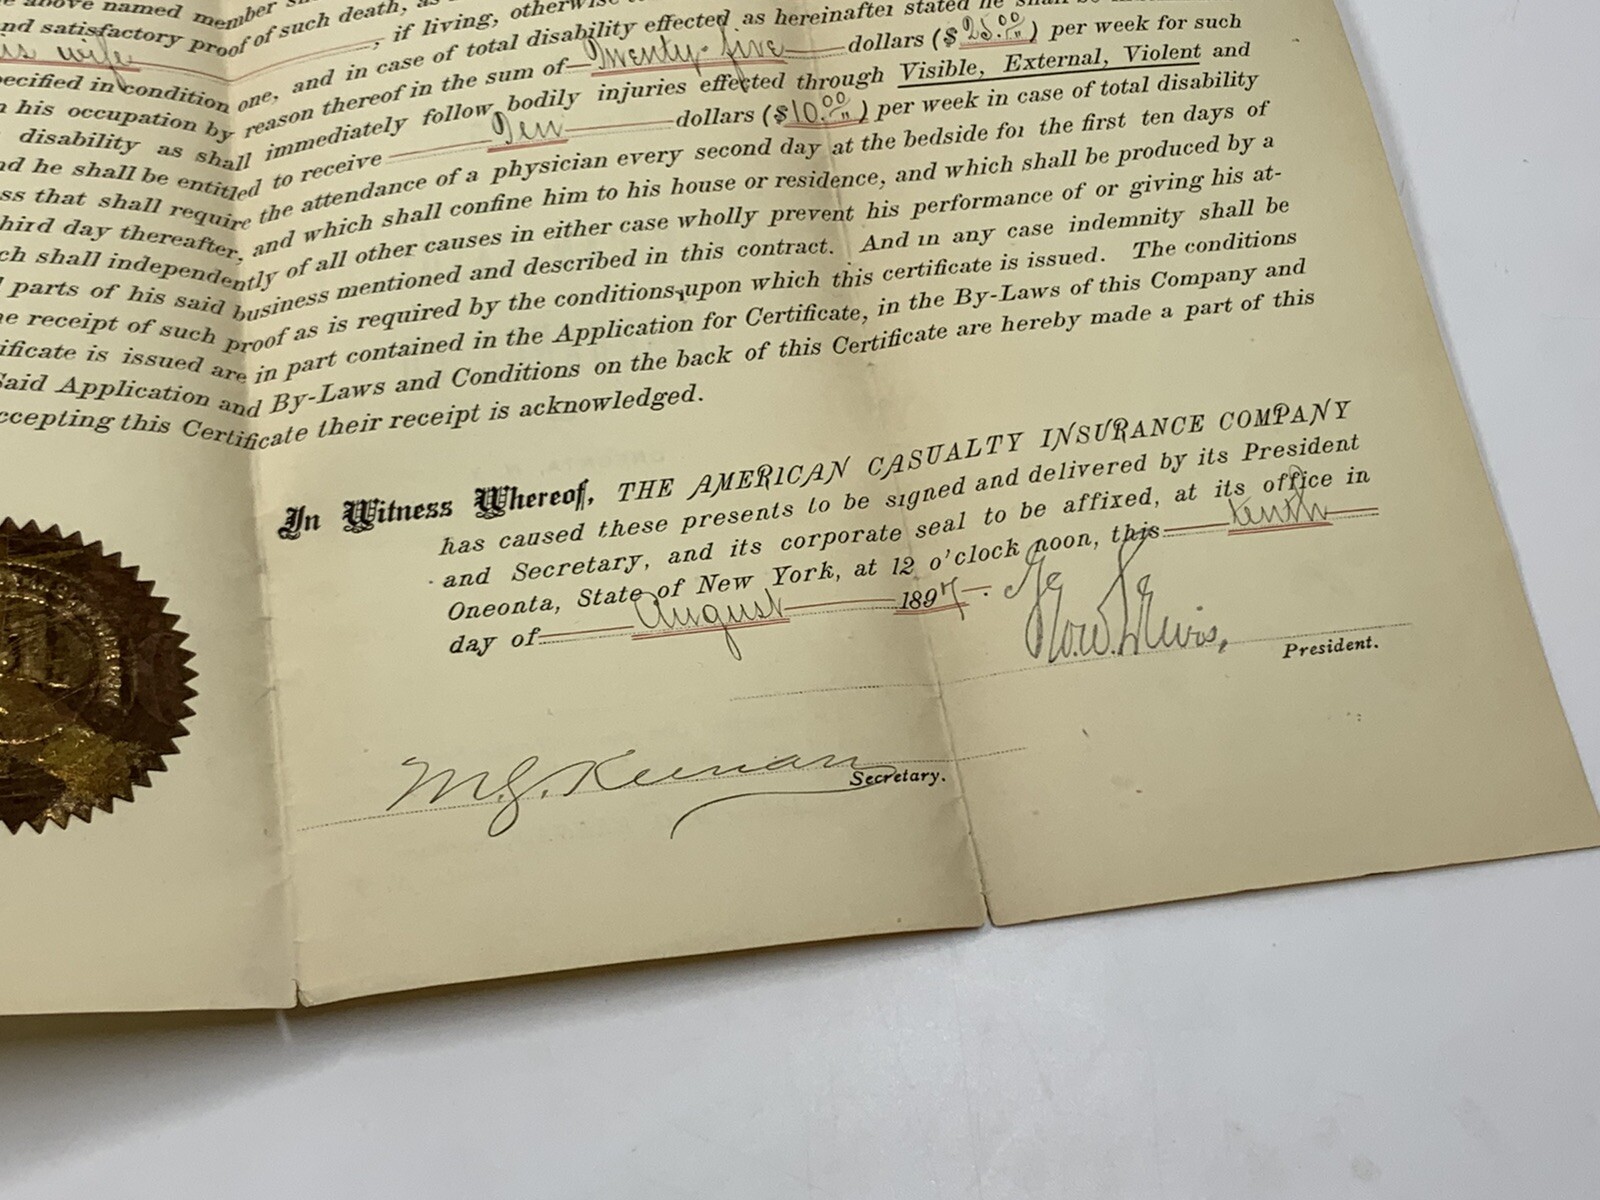 above named member
nd satisfactory proof of such death, as
is wife, if living, otherwise
pecified in condition one, and in case of total disability effected as hereinafter stated he shall be
n his occupation by reason thereof in the sum of Twenty-five dollars ($25.00) per week for such
disability as shall immediately follow bodily injuries effected through Visible, External, Violent and
nd he shall be entitled to receive Ten dollars ($10.00) per week in case of total disability
ss that shall require the attendance of a physician every second day at the bedside for the first ten days of
hird day thereafter, and which shall confine him to his house or residence, and which shall be produced by a
ch shall independently of all other causes in either case wholly prevent his performance of or giving his at-
l parts of his said business mentioned and described in this contract. And in any case indemnity shall be
he receipt of such proof as is required by the conditions upon which this certificate is issued. The conditions
ificate is issued are in part contained in the Application for Certificate, in the By-Laws of this Company and
Said Application and By-Laws and Conditions on the back of this Certificate are hereby made a part of this
ccepting this Certificate their receipt is acknowledged.
In Witness Whereof, THE AMERICAN CASUALTY INSURANCE COMPANY
has caused these presents to be signed and delivered by its President
and Secretary, and its corporate seal to be affixed, at its office in
Oneonta, State of New York, at 12 o'clock noon, this tenth
day of August 1897.
President.
M.G. Keenan
Secretary.